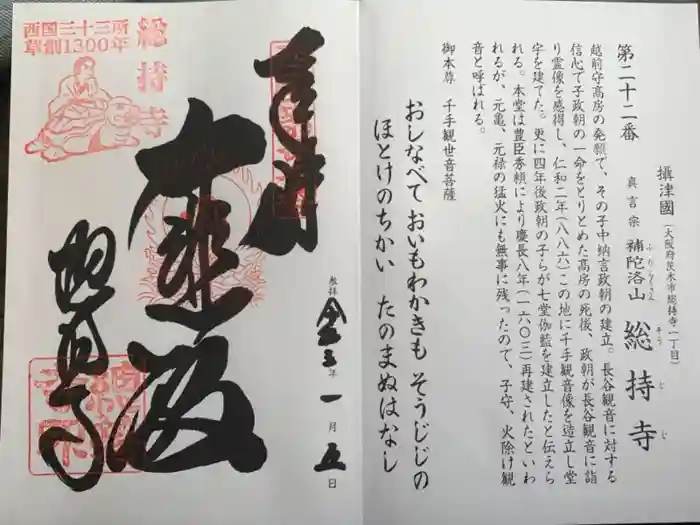 第二十二番
攝津國
(大阪府茨木市総持寺一丁目)
真言宗 補陀洛山 総持寺
ふだらくさん そう じ じ
越前守高房の発願で、その子中納言政朝の建立。長谷観音に対する
信心で子政朝の一命をとりとめた高房の死後、政朝が長谷観音に詣
り霊像を感得し、仁和二年(八八六)この地に千手観音像を造立し堂
宇を建てた。更に四年後政朝の子らが七堂伽藍を建立したと伝えら
れる。本堂は豊臣秀頼により慶長八年(一六〇三)再建されたといわ
れるが、元亀、元禄の猛火にも無事に残ったので、子守、火除け観
音と呼ばれる。
御本尊 千手観世音菩薩
おしなべて おいもわかきも そうじじの
ほとけのちかい たのまぬはなし
西国三十三所
草創1300年
総持寺
奉拝
大悲殿
総持寺
参拝 令三年一月五日